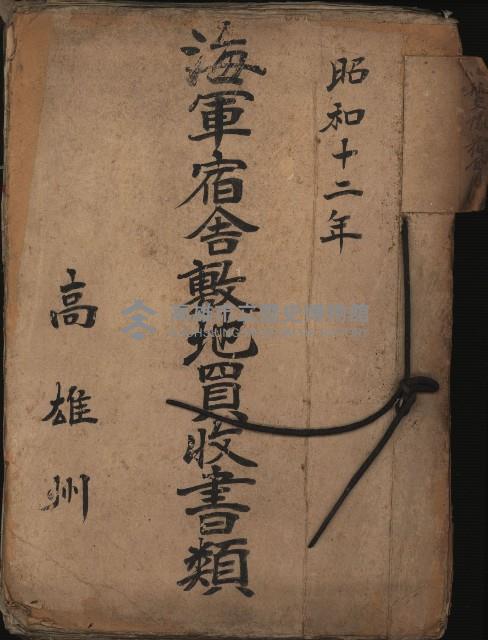 昭和十二年
海軍宿舍敷地買收書類
高雄州
高雄市立歷史博物館
KAOHSIUNG MUSEUM OF HISTORY